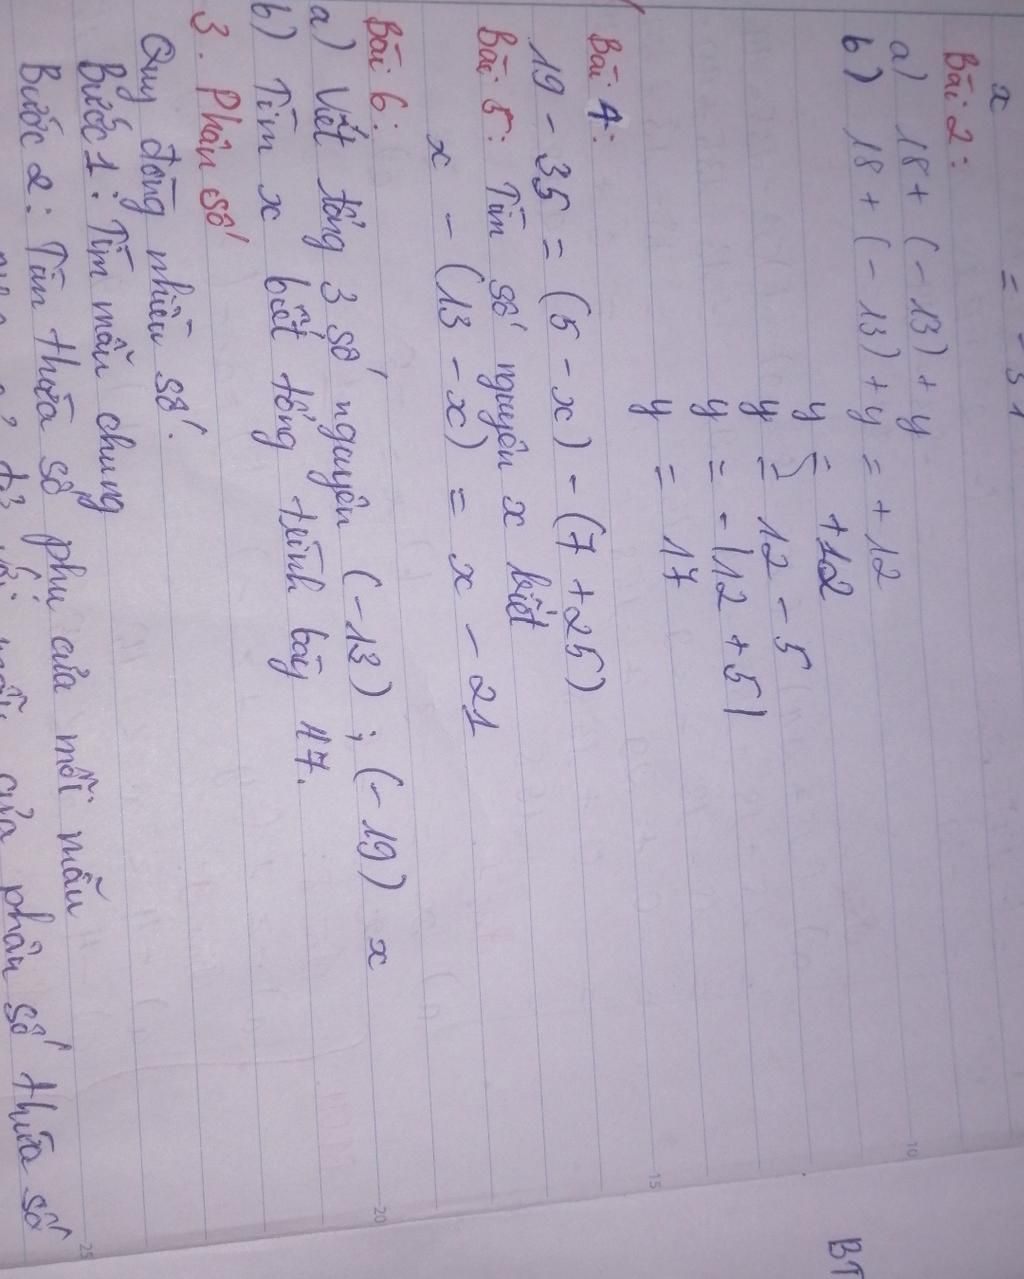 x = -31
Bài 2:
a) 18 + (-13) + y
b) 18 + (-13) + y = +12
y = +12
y = 12 - 5
y = -(12 + 5)
y = 17
Bài 4:
19 - 35 = (5 - x) - (7 + 25)
Bài 5: Tìn số nguyên x biết
x - (13 - x) = x - 21
Bài 6:
a) Viết tổng 3 số nguyên (-13) ; (-19) x
b) Tìn x biết tổng trình bày 17.
3. Phân số
Quy đồng nhiều số.
Bước 1: Tìm mẫu chung
Bước 2: Tìn thừa số phụ của mỗi mẫu
của phân số thừa số
15
10
20
25
BT